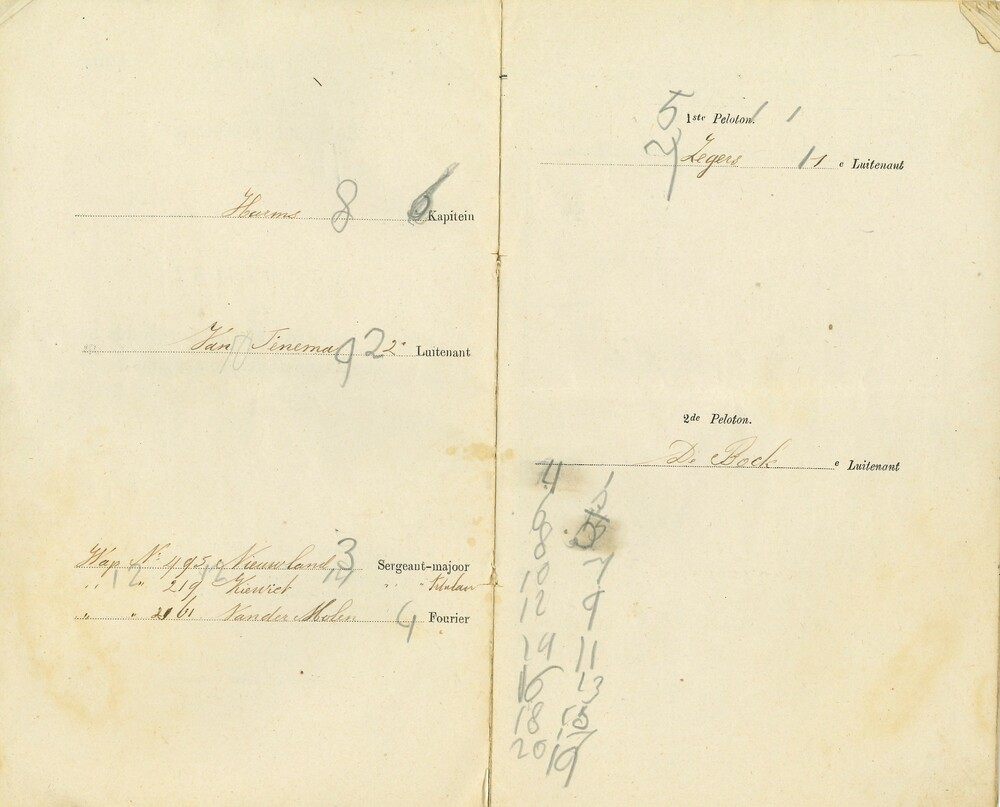 Harms 8 6 Kapitein
Van Tinema 9 2 2e Luitenant
Wap Nr. 495 Nieuwland 3 Sergeant-majoor
" " 219 Kiewiet " " titulair
" " 2161 Van der Molen 4 Fourier
5 1ste Peloton. 1 1
2 Zegers 1 1 e Luitenant
2de Peloton.
De Bock e Luitenant
4
6 5
8 3
10 7
12 9
14 11
16 13
18 15
20 19